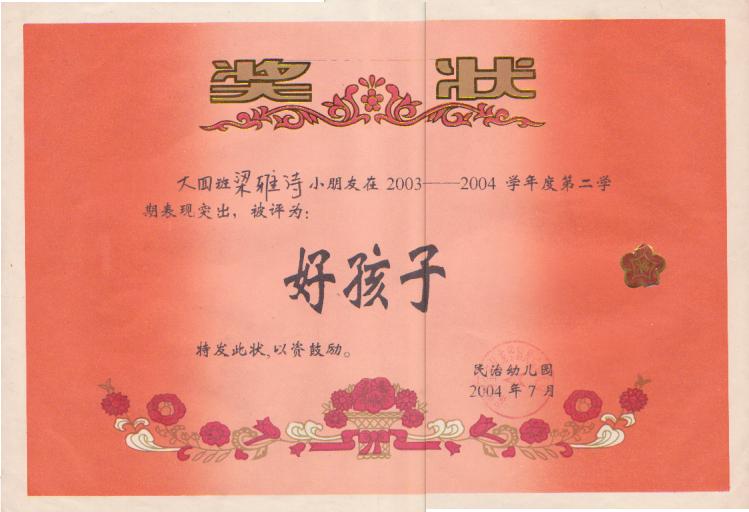 奖 状
大四班梁雅诗小朋友在 2003——2004 学年度第二学
期表现突出，被评为：
好孩子
特发此状，以资鼓励。
民治幼儿园
2004 年 7 月